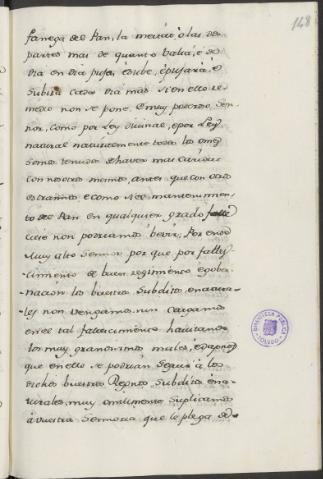 148
fanega del Pan, la mercio o las dos
partes mas de quanto balia, e de
dia en dia puja, e sube, e pujará, e
subirá cada dia mas si en ello re-
medio non se pone. E muy poderoso Sen-
nor, como por Ley divinal, e por Ley
natural naturalmente todos los omes
somos tenudos de haver mas caridat
con nosotros mesmos, antes que con otros
estrannos, e como sin el mantenimien-
to del Pan en qualquier grado
non podriamos bevir; Por ende
Muy alto Sennor por que por falles-
cimiento de buen regimiento e gober-
nacion los buestros Subditos, e natura-
les non vengamos, nin caigamos
en el tal fallescimiento
los muy grandissimos males, e dapnos
que en ello se podrian seguir á los
dichos buestros Regnos Subditos e na-
turales, muy omilmente Suplicamos
á vuestra Sennoria que le plega de
BIBLIOTECA PUBLICA
TOLEDO